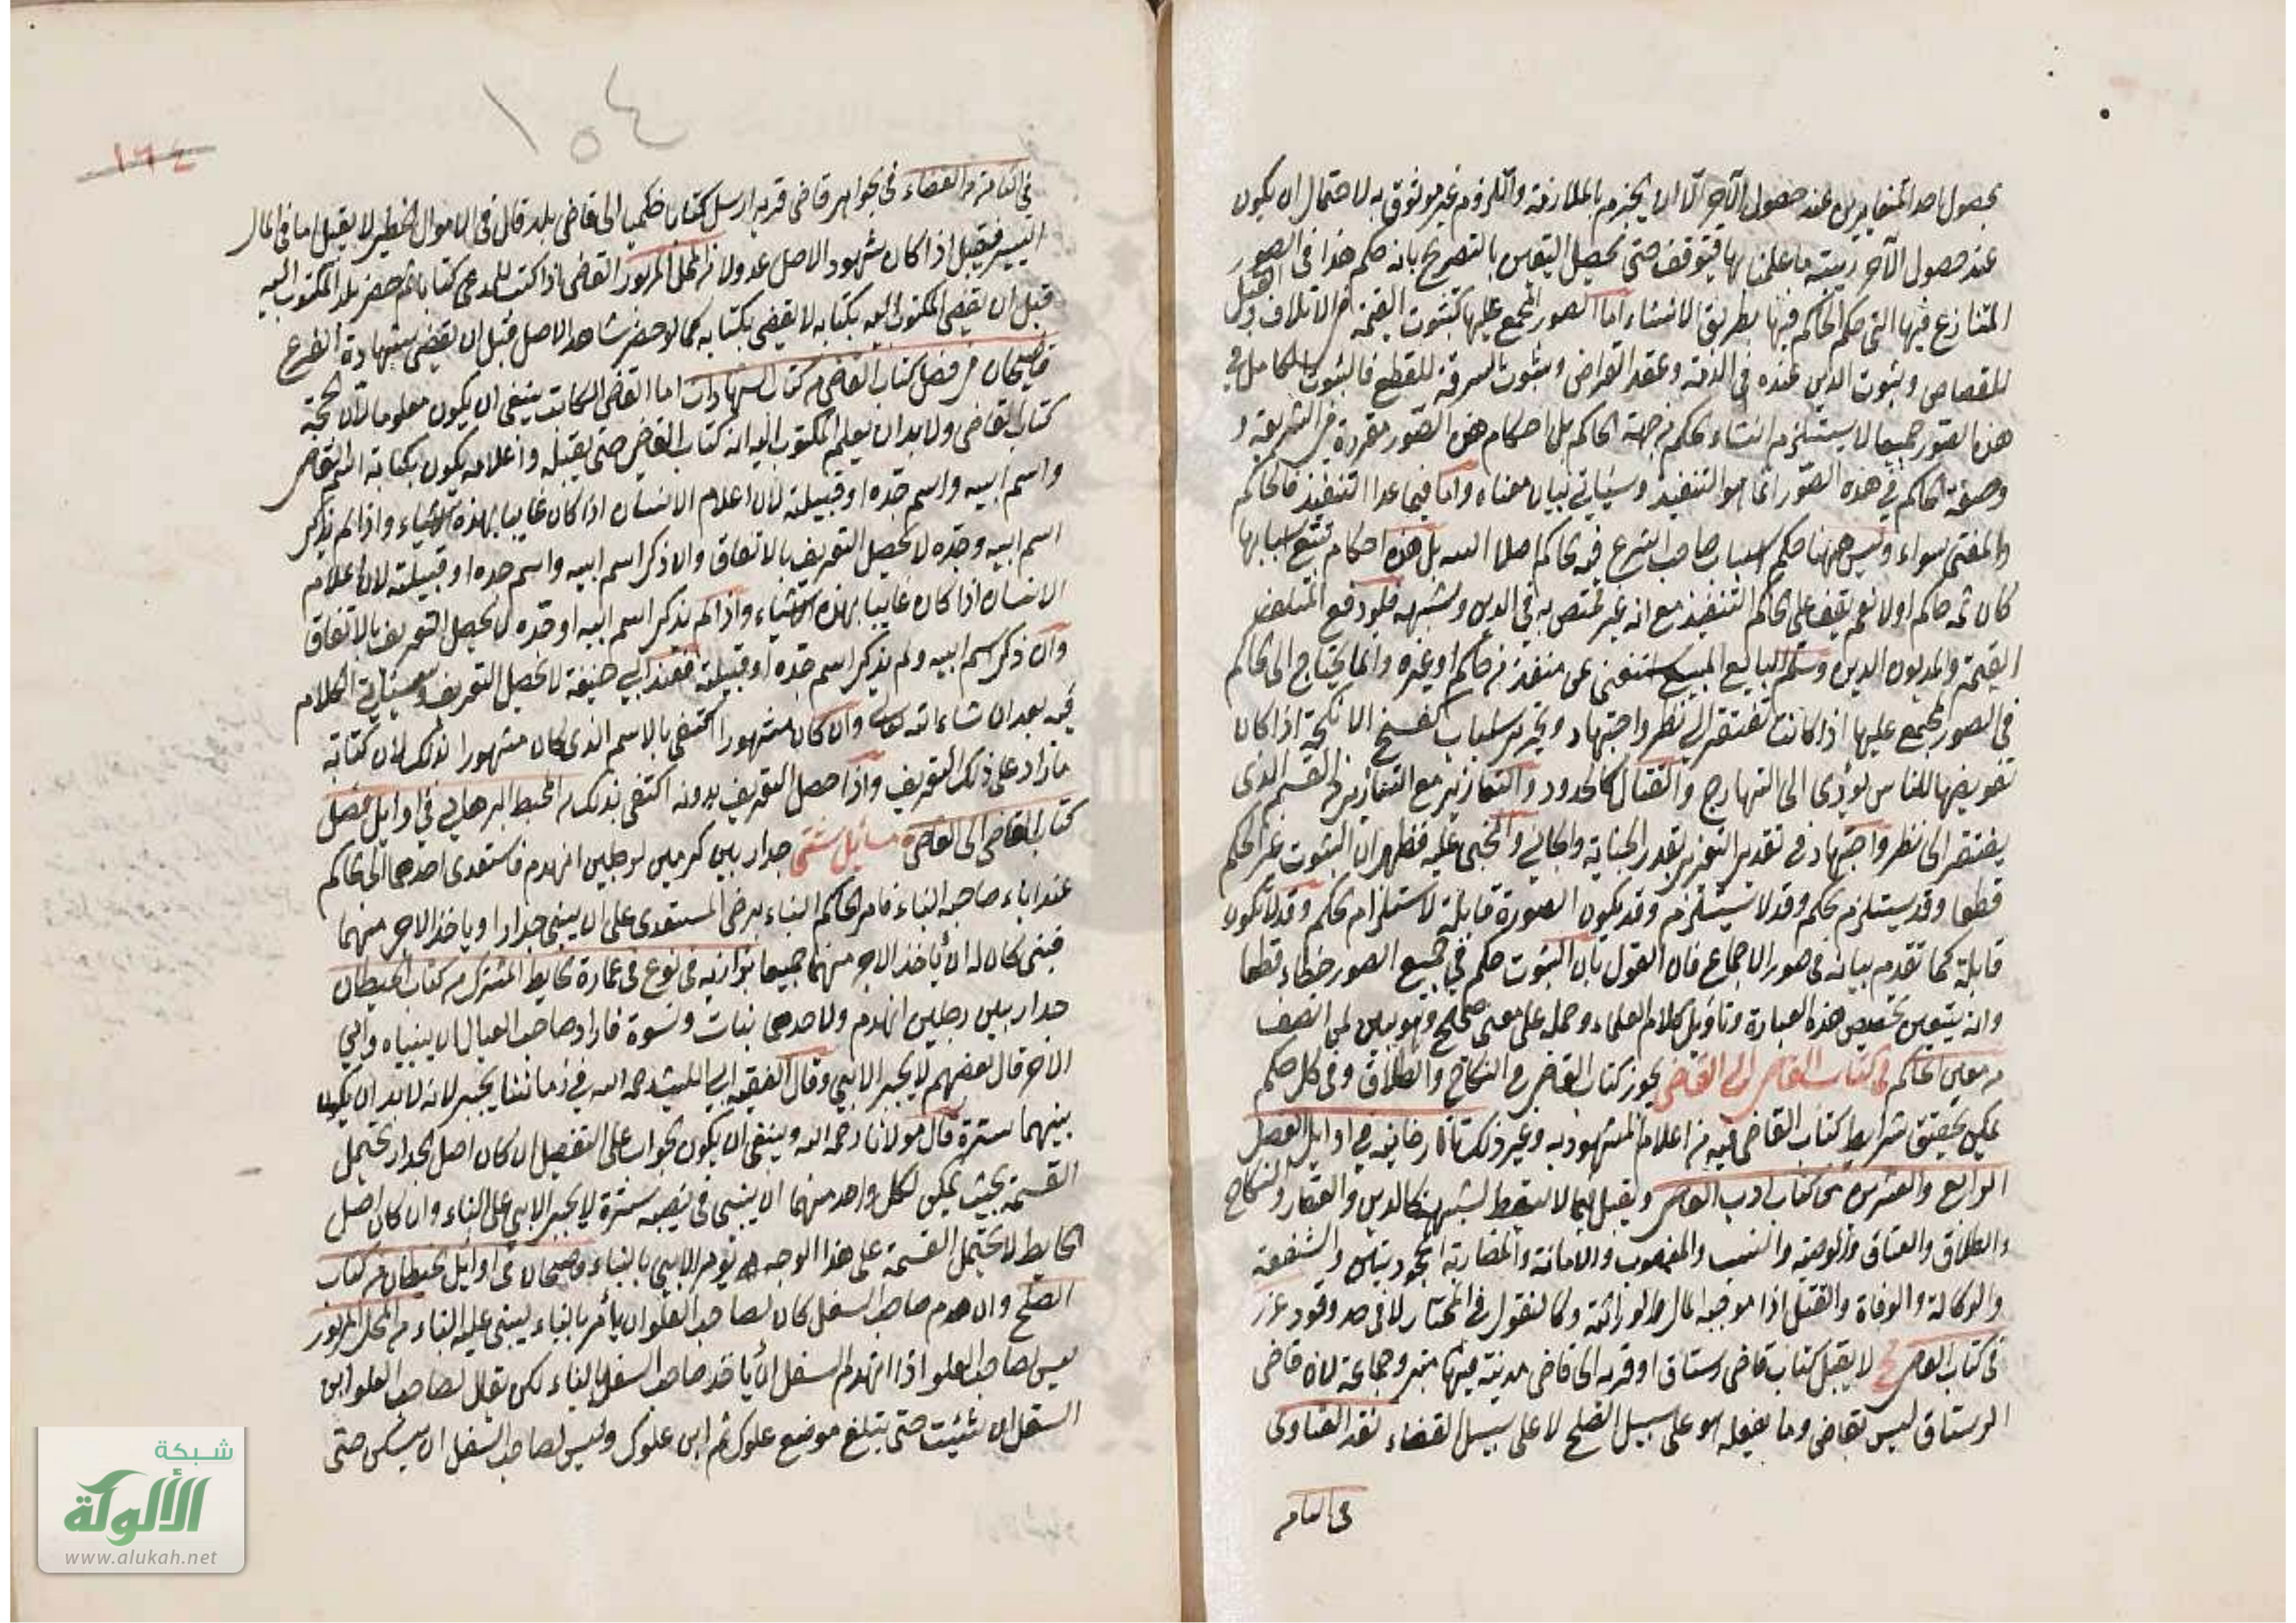 بحصول احد المتغايرين عند حصول الآخر الا ان يجزم بالملازمة واللزوم غير موثوق به لاحتمال ان يكون
عند حصول الآخر ريبته ما علمنا بها فيتوقف حتى يحصل اليقين بالتصريح بانه حكم هذا في الصور
المتنازع فيها التي حكم الحاكم فيها بطريق الانشاء اما الصور المجمع عليها كثبوت القيمة في الاتلاف والقتل
للقصاص وثبوت الدين عنده في الذمة وعقد القراض وثبوت السرقة للقطع فالثبوت الكامل في
هذه الصور جميعها لا يستلزم انشاء حكم من جهة الحاكم بل احكام هذه الصور مقررة في الشريعة و
وصفة الحاكم في هذه الصور انما هو التنفيذ وسياتي بيان معناه واما فيما عدا التنفيذ فالحاكم
والمفتي سواء وليس ههنا حكم استناب صاحب الشرع فيه الحاكم اصلا البتة بل هذه احكام تتبع اسبابها
كان ثمه حاكم اولا نعم يقف على الحاكم التنفيذ مع انه غير مختص به في الدين وشبهه فلو دفع المتلف
القيمة والمديون الدين وسلم البايع المبيع استغنى عن منفذ من حاكم او غيره وانما يحتاج الى الحاكم
في الصور المجمع عليها اذا كانت تفتقر الى نظر واجتهاد وتحرير اسباب كفسخ الانكحة اذا كان
تفويضها للناس يؤدي الى التهارج والقتال كالحدود والتعازير مع التعازير في القسم الذي
يفتقر الى نظر واجتهاد في تقدير التعزير بقدر الجناية والجاني والمجني عليه فظهر ان الثبوت غير الحكم
قطعا وقد يستلزم الحكم وقد لا يستلزم وقد يكون الصورة قابلة لاستلزام الحكم وقد لا تكون
قابلة كما تقدم بيانه في صور الاجماع فان القول بان الثبوت حكم في جميع الصور خطاء قطعا
وانه يتعين تخصيص هذه العبارة وتاويل كلام العلماء وحمله على معنى صحيح وهو بين لمن انصف
من معين الحكام في كتاب القاضي الى القاضي يجوز كتاب القاضي في النكاح والطلاق وفي كل حكم
يمكن تحقيق شرايط كتاب القاضي فيه من اعلام المشهود به وغير ذلك تاتارخانية في اوايل الفصل
الرابع والعشرين من كتاب ادب القاضي ويقبل فيما لا يسقط لشبهة كالدين والعقار والنكاح
والطلاق والعتاق والوصية والنسب والمغصوب والامانة والمضاربة المجحودتين والشفعة
والوكالة والوفاة والقتل اذا موجبه المال والوراثة وكالمنقول في المختار لا في حد وقود غرر
في كتاب القاضي لا يقبل كتاب قاضي رستاق او قرية الى قاضي مدينة فيها منبر وجماعة لان قاضي
الرستاق ليس بقاضي وما يفعله هو على سبيل الصلح لا على سبيل القضاء نقد الفتاوى
في الثامن
١٥٤
١٦٤
في الثامن من القضاء في الجواهر قاضي قرية ارسل كتابا حكميا الى قاضي بلد قال في الاموال الخطير لا يقبل اما في المال
اليسير فيقبل اذا كان شهود الاصل عدولا من المحل المزبور القاضي اذا كتب للمدعي كتابا ثم حضر بلد المكتوب اليه
قبل ان يقضي المكتوب اليه بكتابه لا يقضي بكتابه كما لو حضر شاهد الاصل قبل ان يقضى بشهادة الفرع
قاضيخان في فصل كتاب القاضي من كتاب الشهادات اما القاضي الكاتب ينبغي ان يكون معلوما لان الحجة
كتاب القاضي ولا بد ان يعلم المكتوب اليه انه كتاب القاضي حتى يقبله واعلامه يكون بكتابة اسم القاضي
واسم ابيه واسم جده او قبيلته لان اعلام الانسان اذا كان غايبا بهذه الاشياء واذا لم يذكر
اسم ابيه وجده لا يحصل التعريف بالاتفاق والا ذكر اسم ابيه واسم جده او قبيلته لان اعلام
الانسان اذا كان غايبا بهذه الاشياء واذا لم يذكر اسم ابيه او جده لا يحصل التعريف بالاتفاق
وان ذكر اسم ابيه ولم يذكر اسم جده او قبيلته فعند ابي حنيفة لا يحصل التعريف وسياتي الكلام
فيه بعد ان شاء الله تعالى وان كان مشهورا اكتفى بالاسم الذي كان مشهورا لذلك لان كتابة
ما زاد على ذلك للتعريف واذا حصل التعريف بدونه اكتفي بذلك من المحيط البرهاني في اوايل فصل
كتاب القاضي الى القاضي مسائل شتى جدار بين كرمين لرجلين انهدم فاستعدى احدهما الى الحاكم
عند اباء صاحبه البناء فامر الحاكم البناء برضى المستعدي على ان يبني جدارا وياخذ الاجر منهما
فبنى كان له ان ياخذ الاجر منهما جميعا بزازيه في نوع في عمارة الحايط المشترك من كتاب الحيطان
جدار بين رجلين انهدم ولاحدهما بنات ونسوة فاراد صاحب العيال ان يبنياه وابى
الاخر قال بعضهم لا يجبر الابي وقال الفقيه ابي الليث رحمه الله في زماننا يجبر لانه لا بد ان يكون
بينهما سترة قال مولانا رحمه الله وينبغي ان يكون الجواب على التفصيل ان كان اصل الجدار يحتمل
القسمة بحيث يمكن لكل واحد منهما ان يبني في نصيبه سترة لا يجبر الابي على البناء وان كان اصل
الحايط لا يحتمل القسمة على هذا الوجه يؤمر الابي بالبناء قاضيخان في اوايل الحيطان من كتاب
الصلح وان هدم صاحب السفل كان لصاحب العلو ان يأمر بالبناء ليبني عليه البناء من المحل المزبور
ليس لصاحب العلو اذا انهدم السفل ان ياخذ صاحب السفل بالبناء لكن يقال لصاحب العلو ابن
السفل ان شئت حتى يتبلغ موضع علوك ثم ابن علوك وليس لصاحب السفل ان يسكن حتى
شبكة
الألوكة
www.alukah.net